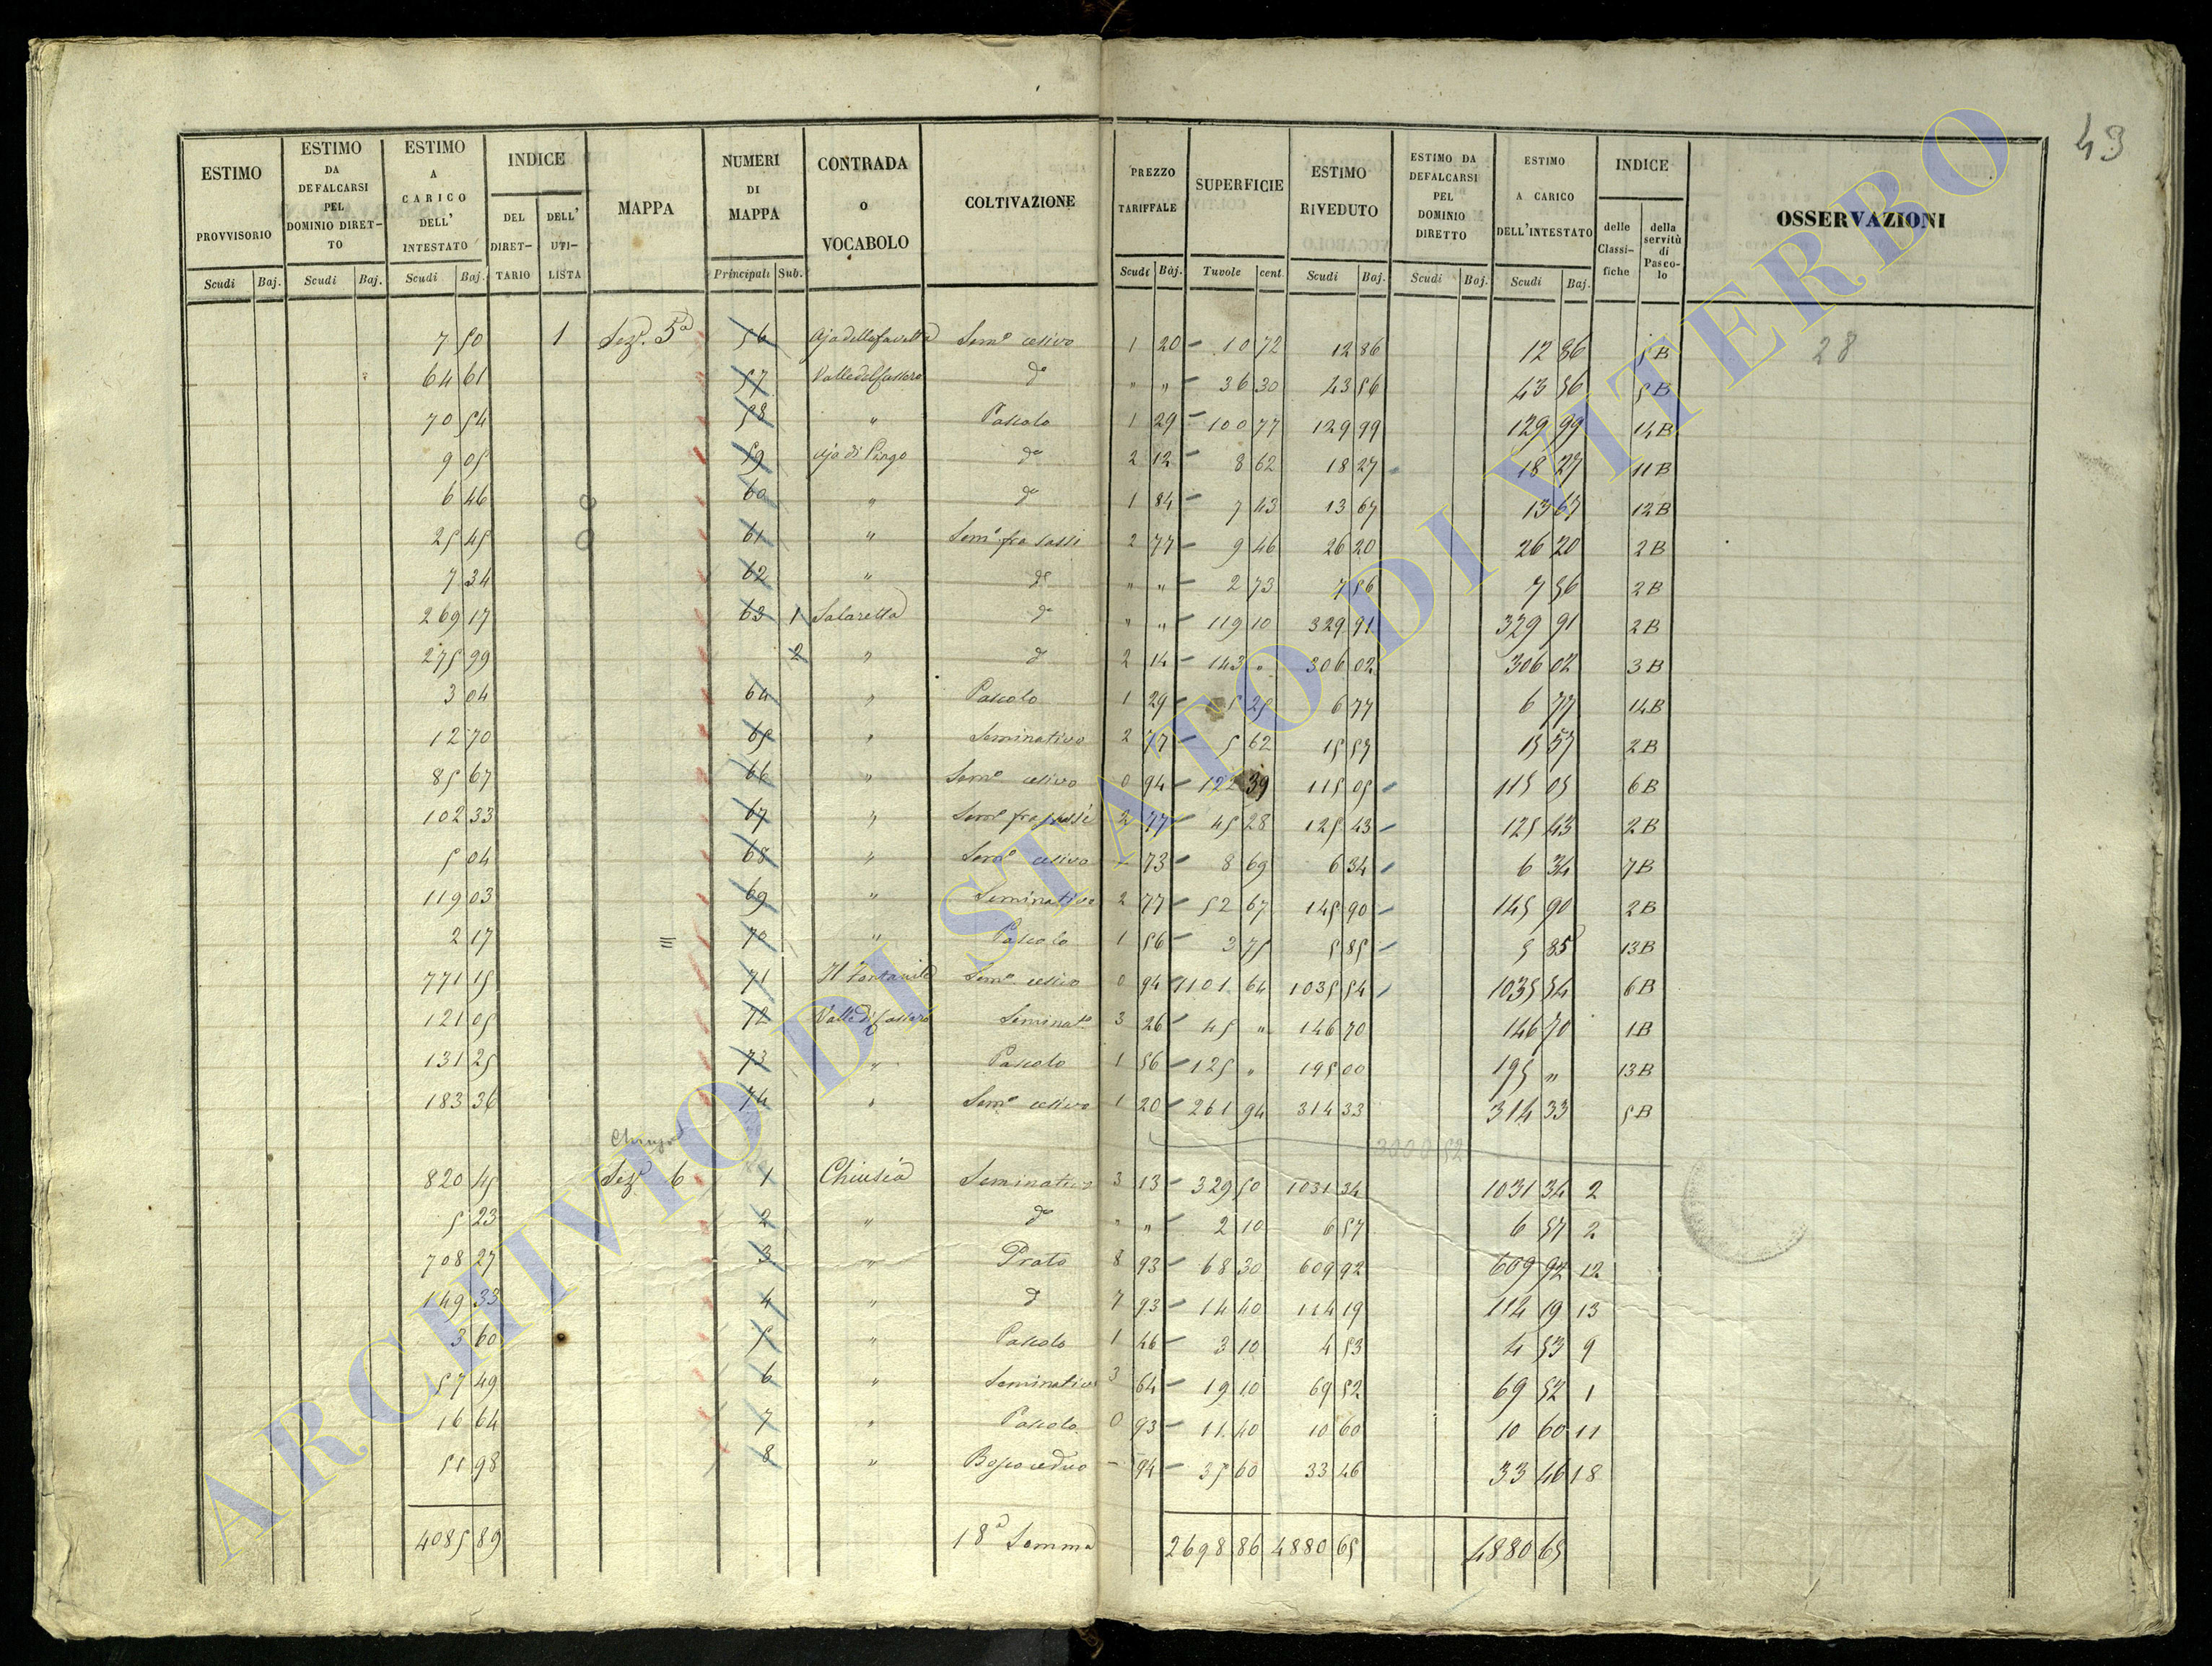 43
ESTIMO PROVVISORIO Scudi Baj.
ESTIMO DA DEFALCARSI PEL DOMINIO DIRETTO Scudi Baj.
ESTIMO A CARICO DELL' INTESTATO Scudi Baj.
INDICE DEL DIRETTARIO DELL' UTILISTA
MAPPA
NUMERI DI MAPPA Principali Sub.
CONTRADA O VOCABOLO
COLTIVAZIONE
PREZZO TARIFFALE Scudi Baj.
SUPERFICIE Tavole cent.
ESTIMO RIVEDUTO Scudi Baj.
ESTIMO DA DEFALCARSI PEL DOMINIO DIRETTO Scudi Baj.
ESTIMO A CARICO DELL'INTESTATO Scudi Baj.
INDICE delle Classifiche della servitù di Pascolo
OSSERVAZIONI
7 50 1 Sez.e 5a 56 Sem.o 1 20 10 72 12 86 12 86 5B 28
64 61 57 do " " 36 30 43 56 43 56 5B
70 54 58 " Pascolo 1 29 100 77 129 99 129 99 14B
9 05 59 Aja di do 2 12 8 62 18 27 18 27 11B
6 46 60 " do 1 84 7 43 13 67 13 67 12B
25 45 61 " Sem.o fra sassi 2 77 9 46 26 20 26 20 2B
7 34 62 " do " " 2 73 7 56 7 56 2B
269 17 63 1 Salarella do " " 119 10 329 91 329 91 2B
275 99 2 " do 2 14 143 " 306 02 306 02 3B
3 04 64 " Pascolo 1 29 5 25 6 77 6 77 14B
12 70 65 " Seminativo 2 77 5 62 15 57 15 57 2B
85 67 66 " Sem.o 0 94 122 39 115 05 115 05 6B
102 33 67 " Sem.o fra sassi 2 77 45 28 125 43 125 43 2B
5 04 68 " Sem.o - 73 8 69 6 34 6 34 7B
119 03 69 " Seminativo 2 77 52 67 145 90 145 90 2B
2 17 70 " Pascolo 1 56 3 75 5 85 5 85 13B
771 15 71 Il Fontanile Sem.o 0 94 1101 64 1035 54 1035 54 6B
121 05 72 Valle di Seminat.o 3 26 45 " 146 70 146 70 1B
131 25 73 " Pascolo 1 56 125 " 195 00 195 " 13B
183 36 74 " Sem.o 1 20 261 94 314 33 314 33 5B
3000 52
820 45 Sez.e 6 1 Chiusa Seminativo 3 13 329 50 1031 34 1031 34 2
5 23 2 " do " " 2 10 6 57 6 57 2
708 27 3 " Prato 8 93 68 30 609 92 609 92 12
149 33 4 " do 7 93 14 40 114 19 114 19 13
3 60 5 " Pascolo 1 46 3 10 4 53 4 53 9
57 49 6 " Seminativo 3 64 19 10 69 52 69 52 1
16 64 7 " Pascolo 0 93 11 40 10 60 10 60 11
51 98 8 " Bosco ceduo - 94 35 60 33 46 33 46 18
4085 89 18a Somma 2698 86 4880 65 4880 65
ARCHIVIO DI STATO DI VITERBO